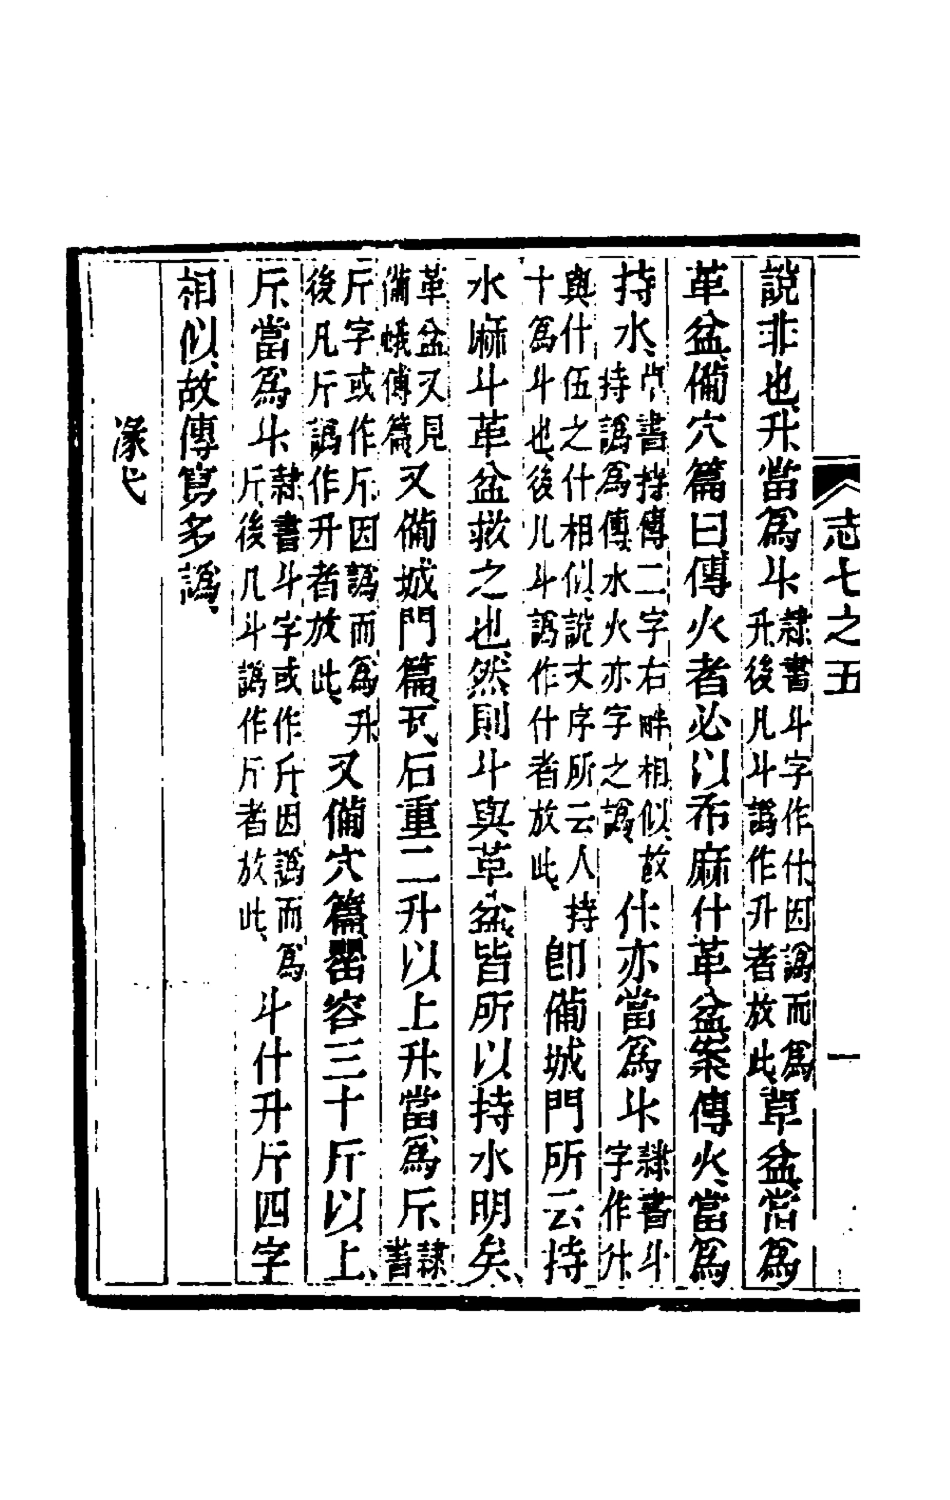 志七之五
一
說非也升當爲斗隸書斗字作什因譌而爲升後凡斗譌作升者放此草盆當爲
革盆備穴篇曰傳火者必以布麻什革盆案傳火當爲
持水隸書持傳二字右畔相似故持譌爲傳水火亦字之譌什亦當爲斗隸書斗字作什
與什伍之什相似說文序所云人持十爲斗也後凡斗譌作什者放此卽備城門所云持
水麻斗革盆救之也然則斗與革盆皆所以持水明矣
革盆又見備蛾傅篇又備城門篇瓦石重二升以上升當爲斤隸書
斤字或作斤因譌而爲升後凡斤譌作升者放此又備穴篇罌容三十斤以上
斤當爲斗隸書斗字或作斤因譌而爲斤後凡斗譌作斤者放此斗什升斤四字
相似故傳寫多譌
㒸弋